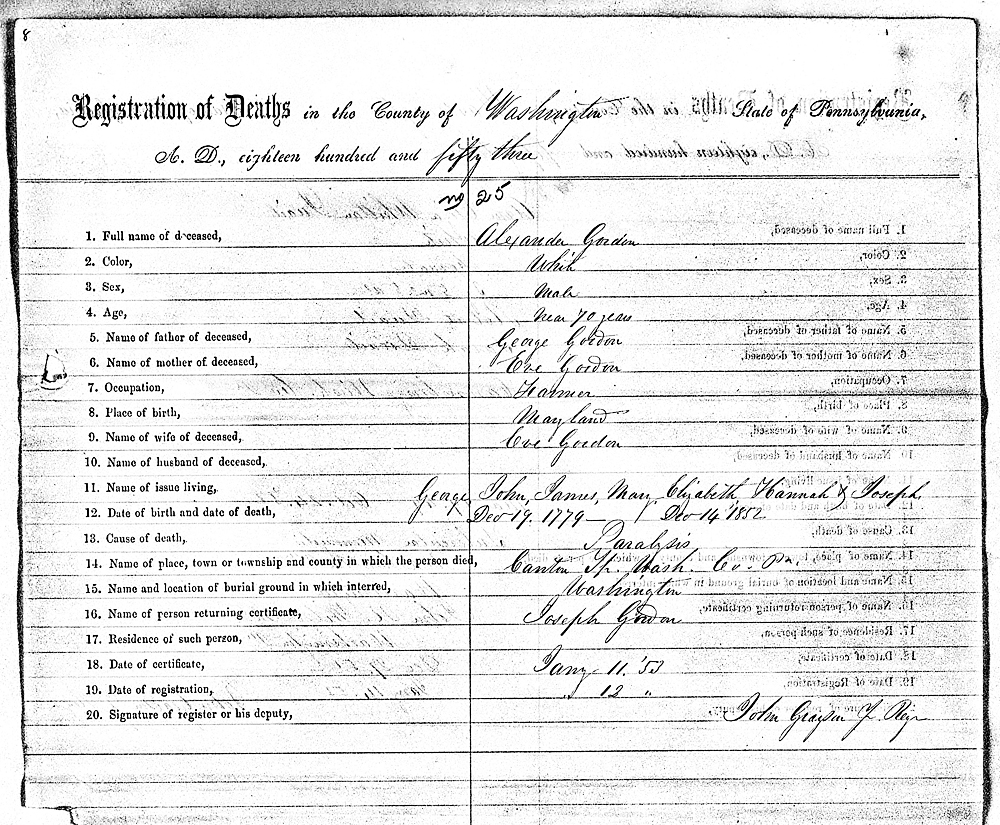 8
Registration of Deaths in the County of Washington State of Pennsylvania,
A. D., eighteen hundred and fifty three
No 25
1. Full name of deceased, Alexander Gordon
2. Color, White
3. Sex, Male
4. Age, Near 70 years
5. Name of father of deceased, George Gordon
6. Name of mother of deceased, Eve Gordon
7. Occupation, Farmer
8. Place of birth, Maryland
9. Name of wife of deceased, Eve Gordon
10. Name of husband of deceased,
11. Name of issue living, George, John, James, Mary, Elizabeth, Hannah & Joseph
12. Date of birth and date of death, Dec 19. 1779 — / Dec 14 1852
13. Cause of death, Paralysis
14. Name of place, town or township and county in which the person died, Canton Tp. Wash. Co. Pa.
15. Name and location of burial ground in which interred, Washington
16. Name of person returning certificate, Joseph Gordon
17. Residence of such person,
18. Date of certificate, Jany 11. '53
19. Date of registration, " 12 "
20. Signature of register or his deputy, John Grayson Jr Regr